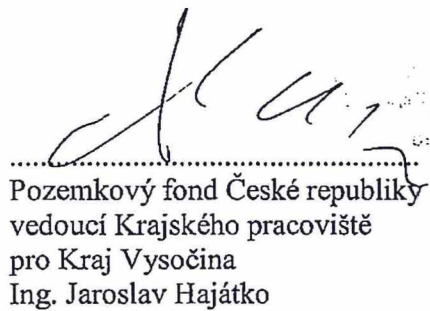 Pozemkový fond České republiky
vedoucí Krajského pracoviště
pro Kraj Vysočina
Ing. Jaroslav Hajátko